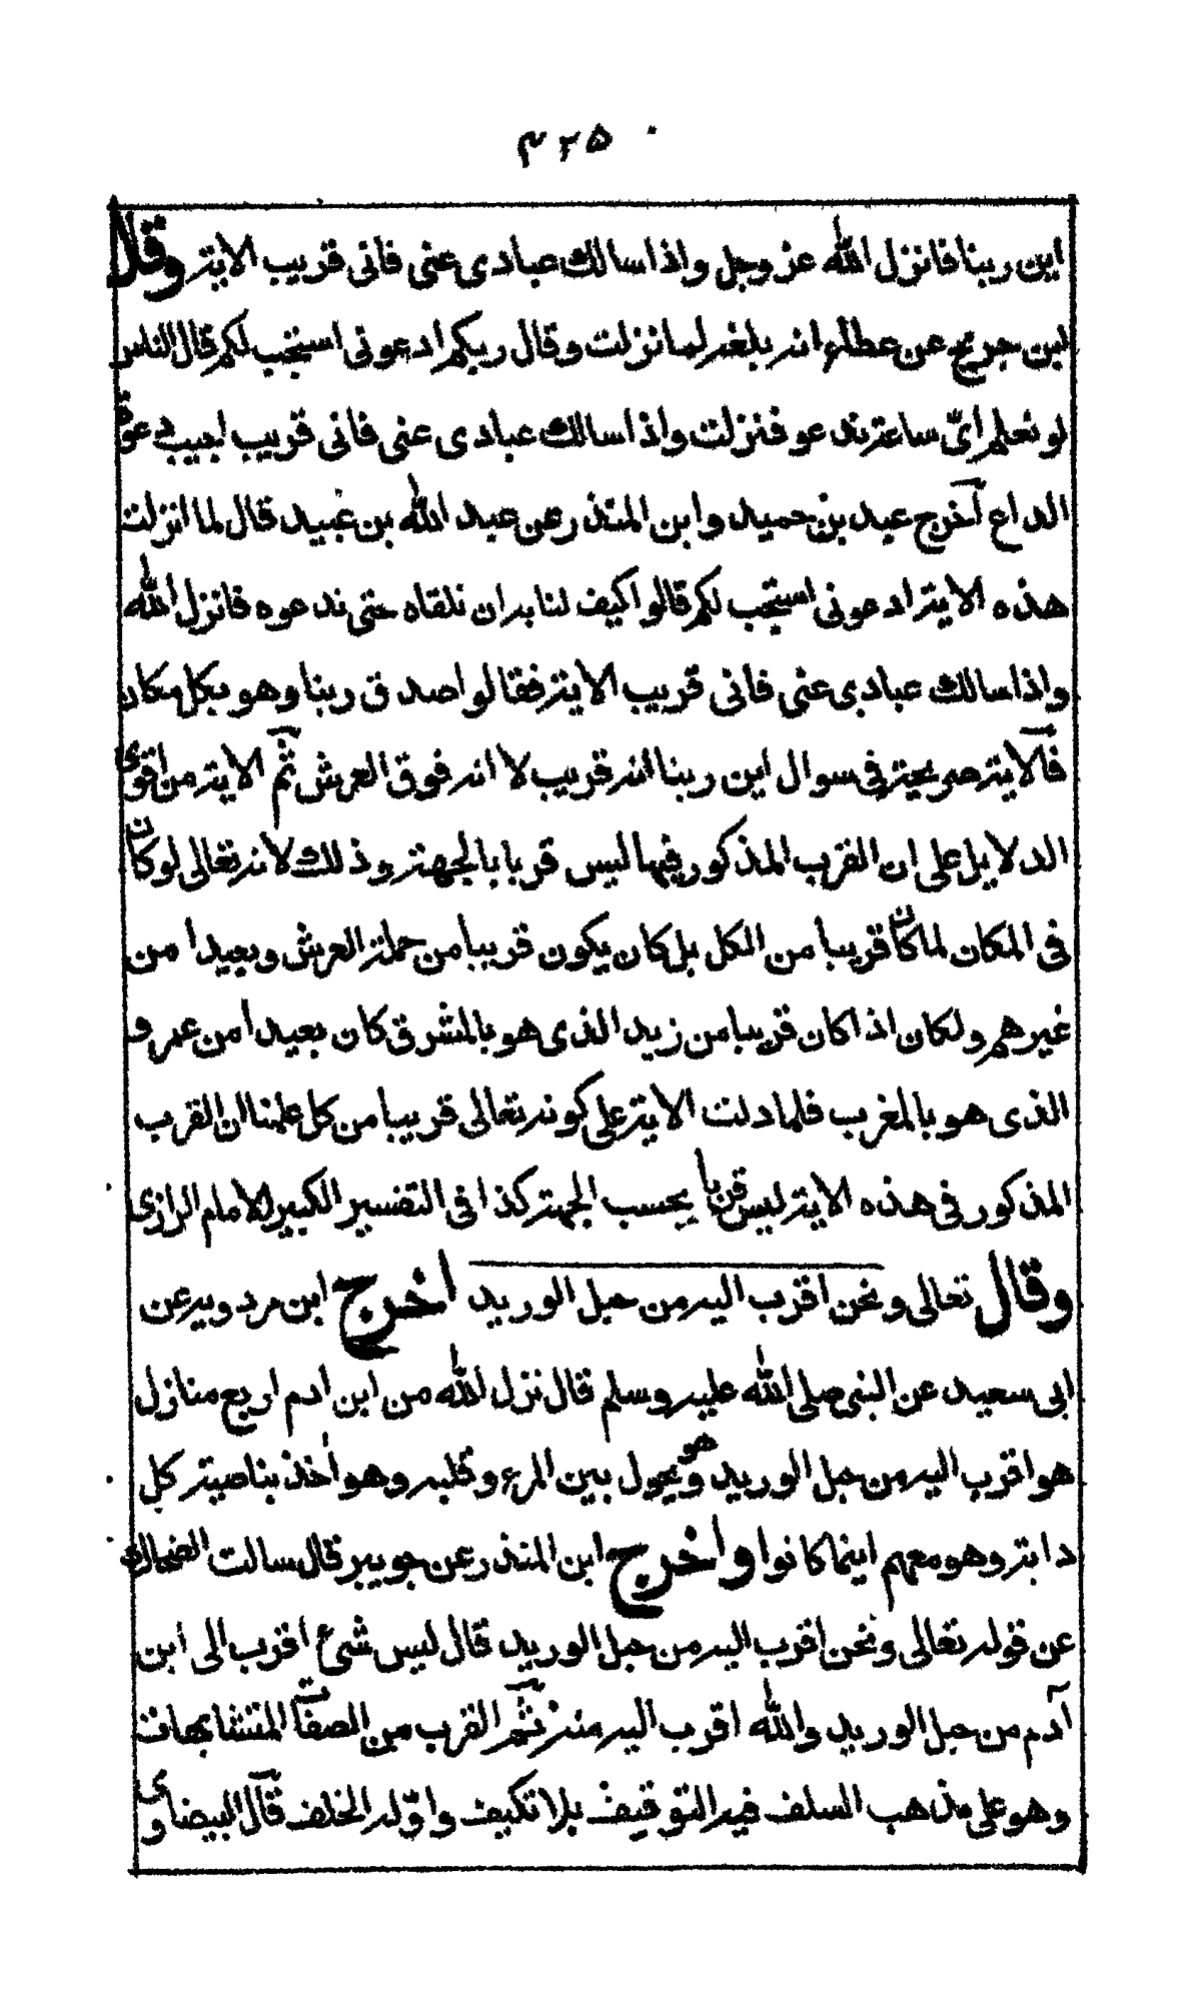 ۴۲۵
اين ربنا فانزل الله عز وجل واذا سالك عبادى عنى فانى قريب الاية وقال
ابن جريج عن عطاء انه بلغه لما نزلت وقال ربكم ادعونى استجب لكم قال الناس
لو نعلم اىّ ساعة ندعو فنزلت واذا سالك عبادى عنى فانى قريب اجيب دعوة
الداع اخرج عبد بن حميد وابن المنذر عن عبد الله بن عبيد قال لما انزلت
هذه الاية ادعونى استجب لكم قالوا كيف لنا به ان نلقاه حتى ندعوه فانزل الله
واذا سالك عبادى عنى فانى قريب الاية فقالوا صدق ربنا وهو بكل مكان
فالاية صريحة فى سوال اين ربنا انه قريب لا انه فوق العرش ثم الاية من اقوى
الدلايل على ان القرب المذكور فيها ليس قربا بالجهة وذلك لانه تعالى لو كان
فى المكان لما كان قريبا من الكل بل كان يكون قريبا من حملة العرش وبعيدا من
غيرهم ولكان اذا كان قريبا من زيد الذى هو بالمشرق كان بعيدا من عمرو
الذى هو بالمغرب فلما دلت الاية على كونه تعالى قريبا من كل علمنا ان القرب
المذكور فى هذه الاية ليس قربا بحسب الجهة كذا فى التفسير الكبير للامام الرازى
وقال تعالى ونحن اقرب اليه من حبل الوريد اخرج ابن مردويه عن
ابى سعيد عن النبى صلى الله عليه وسلم قال نزل الله من ابن ادم اربع منازل
هو اقرب اليه من حبل الوريد وهو يحول بين المرء وقلبه وهو اخذ بناصية كل
دابة وهو معهم اينما كانوا واخرج ابن المنذر عن جويبر قال سالت الضحاك
عن قوله تعالى ونحن اقرب اليه من حبل الوريد قال ليس شئ اقرب الى ابن
آدم من حبل الوريد والله اقرب اليه منه ثم القرب من الصفات المتشابهات
وهو على مذهب السلف فيه التوقيف بلا تكييف واوّله الخلف قال البيضاوى